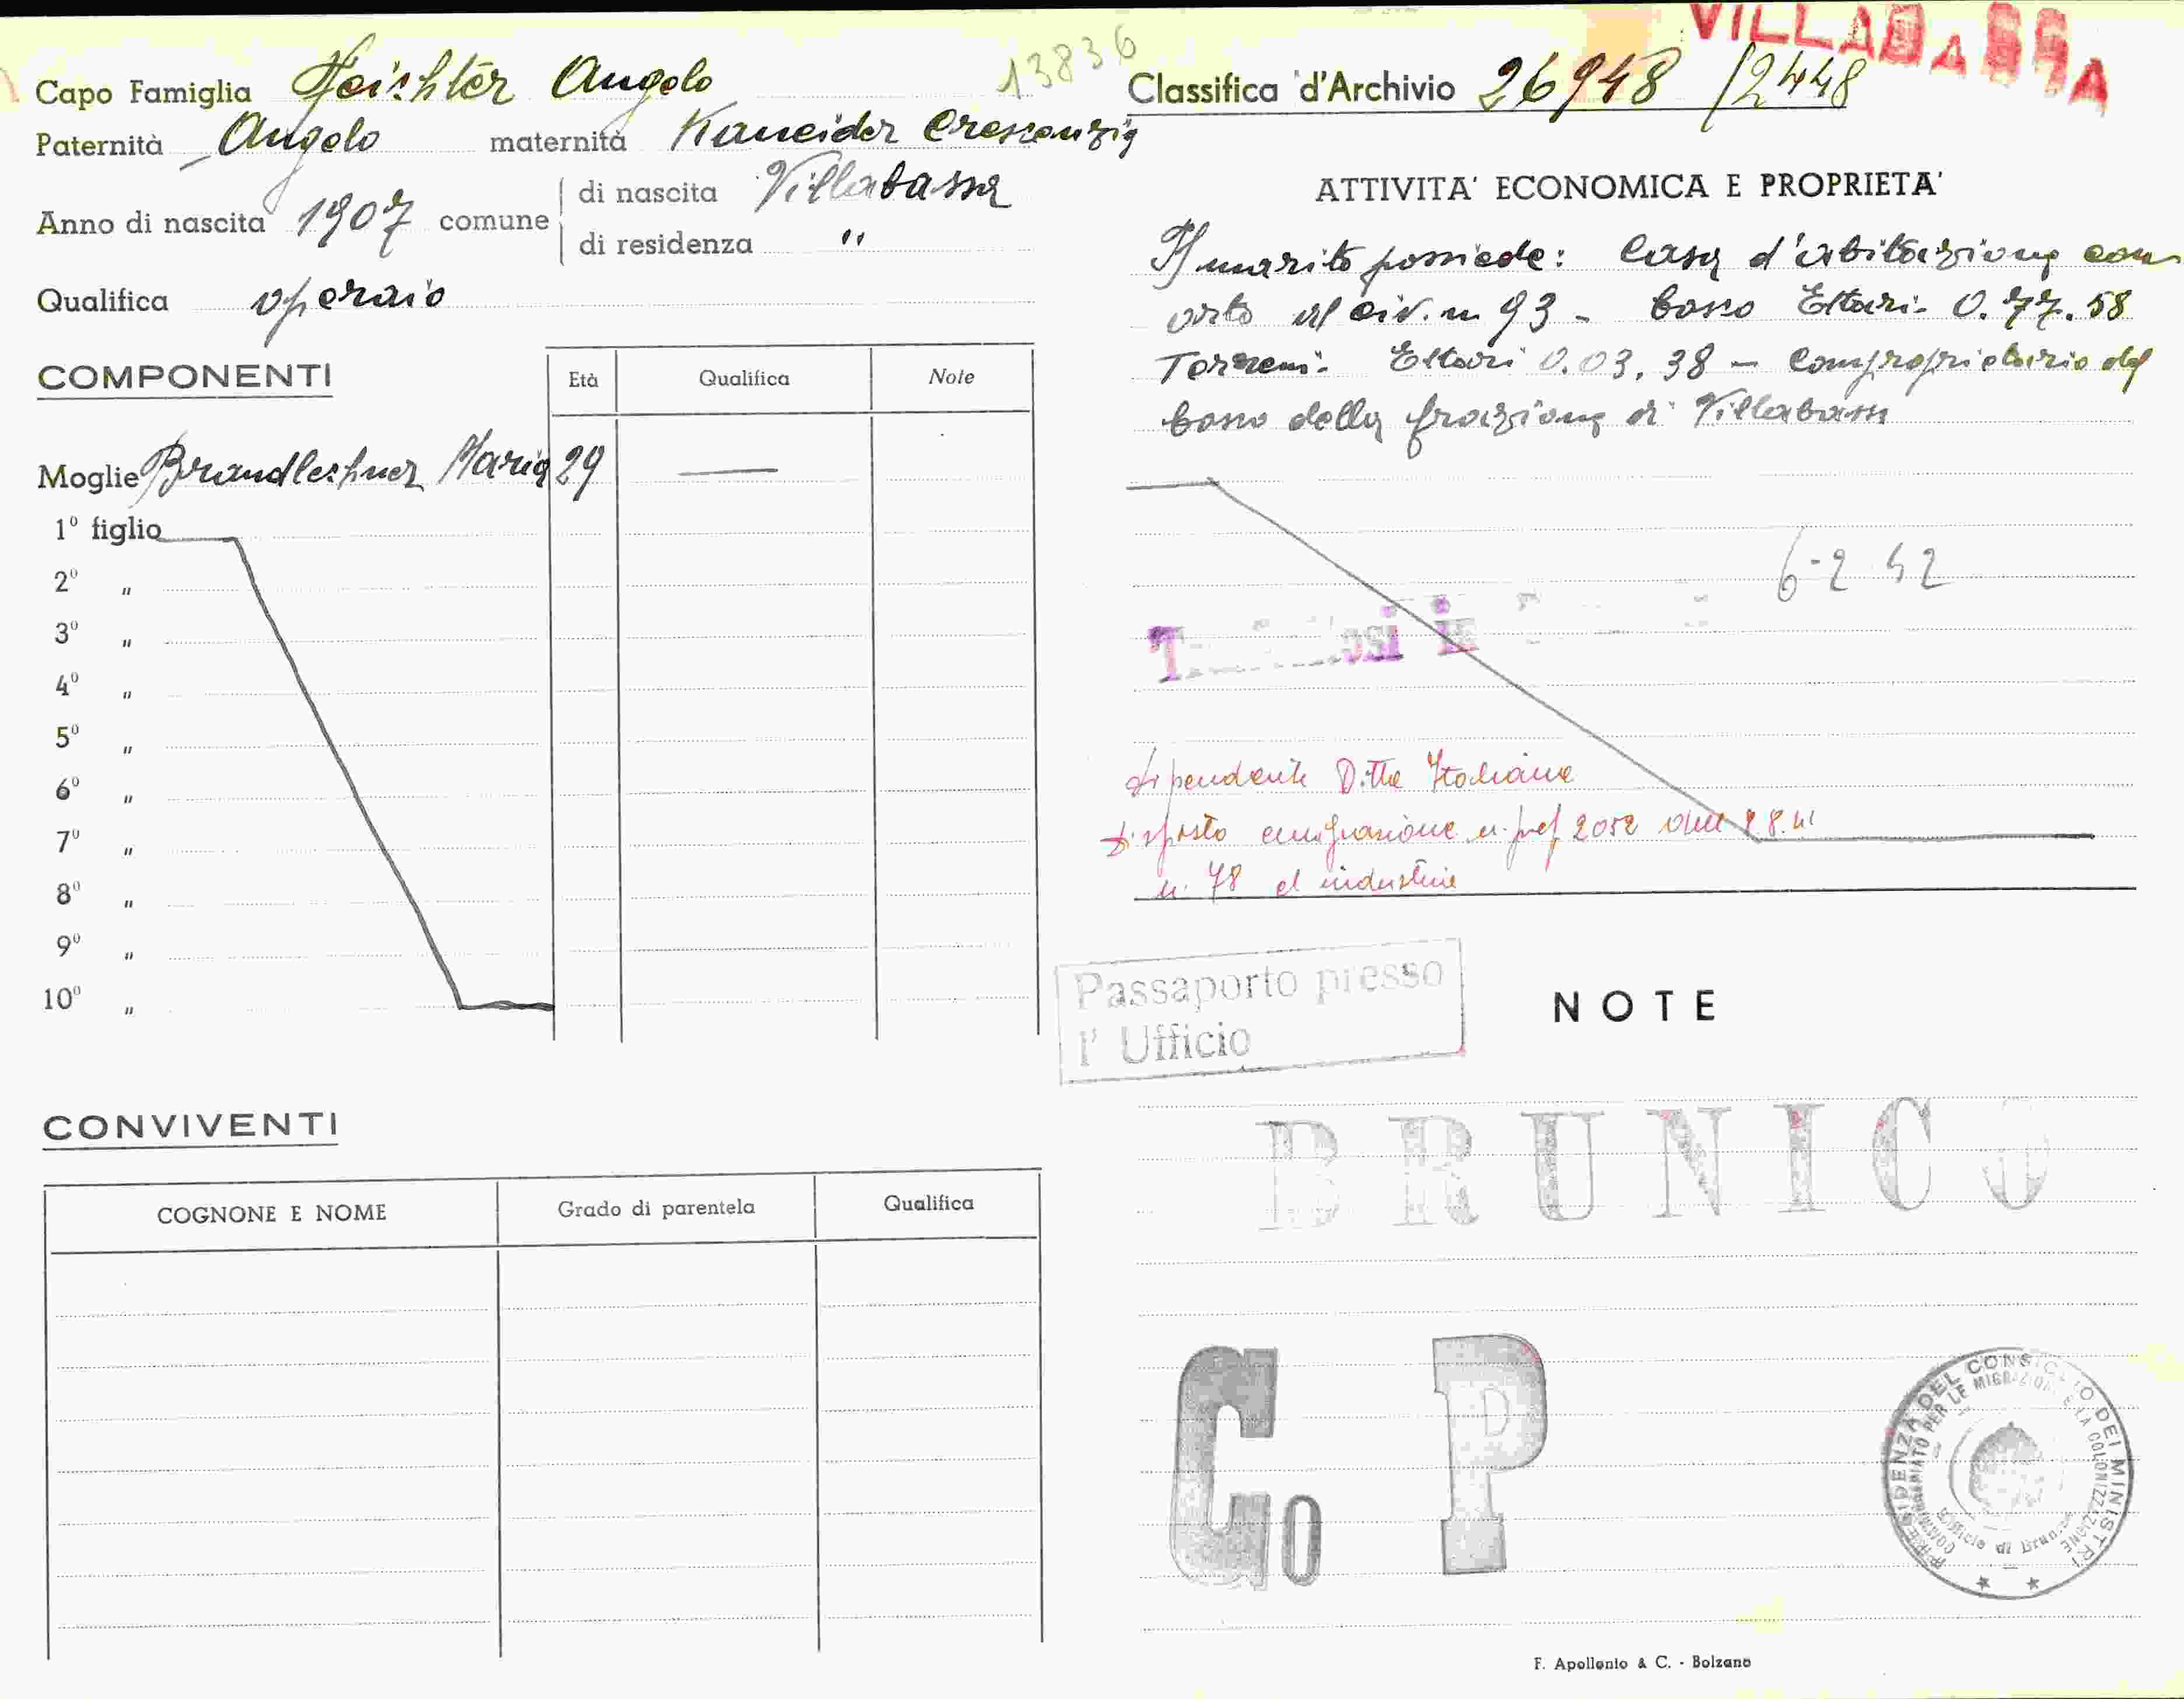 VILLABASSA
13836
Capo Famiglia Feichter Angelo
Classifica d'Archivio 26948 /2448
Paternità Angelo maternità Kaneider Crescenzia
Anno di nascita 1907 comune di nascita Villabassa
di residenza "
Qualifica operaio
COMPONENTI
Età Qualifica Note
Moglie Brandlechner Maria 29
1º figlio
2º "
3º "
4º "
5º "
6º "
7º "
8º "
9º "
10º "
CONVIVENTI
COGNONE E NOME Grado di parentela Qualifica
ATTIVITA' ECONOMICA E PROPRIETA'
Il marito possiede: Casa d'abitazione con
orto al civ. n 93 - bosco Ettari - 0.77.58
Terreni - Ettari 0.03.38 - Comproprietario del
bosco della frazione di Villabassa
6-2 42
dipendente Ditta Italiana
disposto emigrazione n. pref 2052 8.41
n. 78 industrie
Passaporto presso
l' Ufficio
NOTE
BRUNICO
Co P
PRESIDENZA DEL CONSIGLIO DEI MINISTRI
COMMISSARIATO PER LE MIGRAZIONI E LA COLONIZZAZIONE
Ufficio di Brunico
F. Apollonio & C. - Bolzano